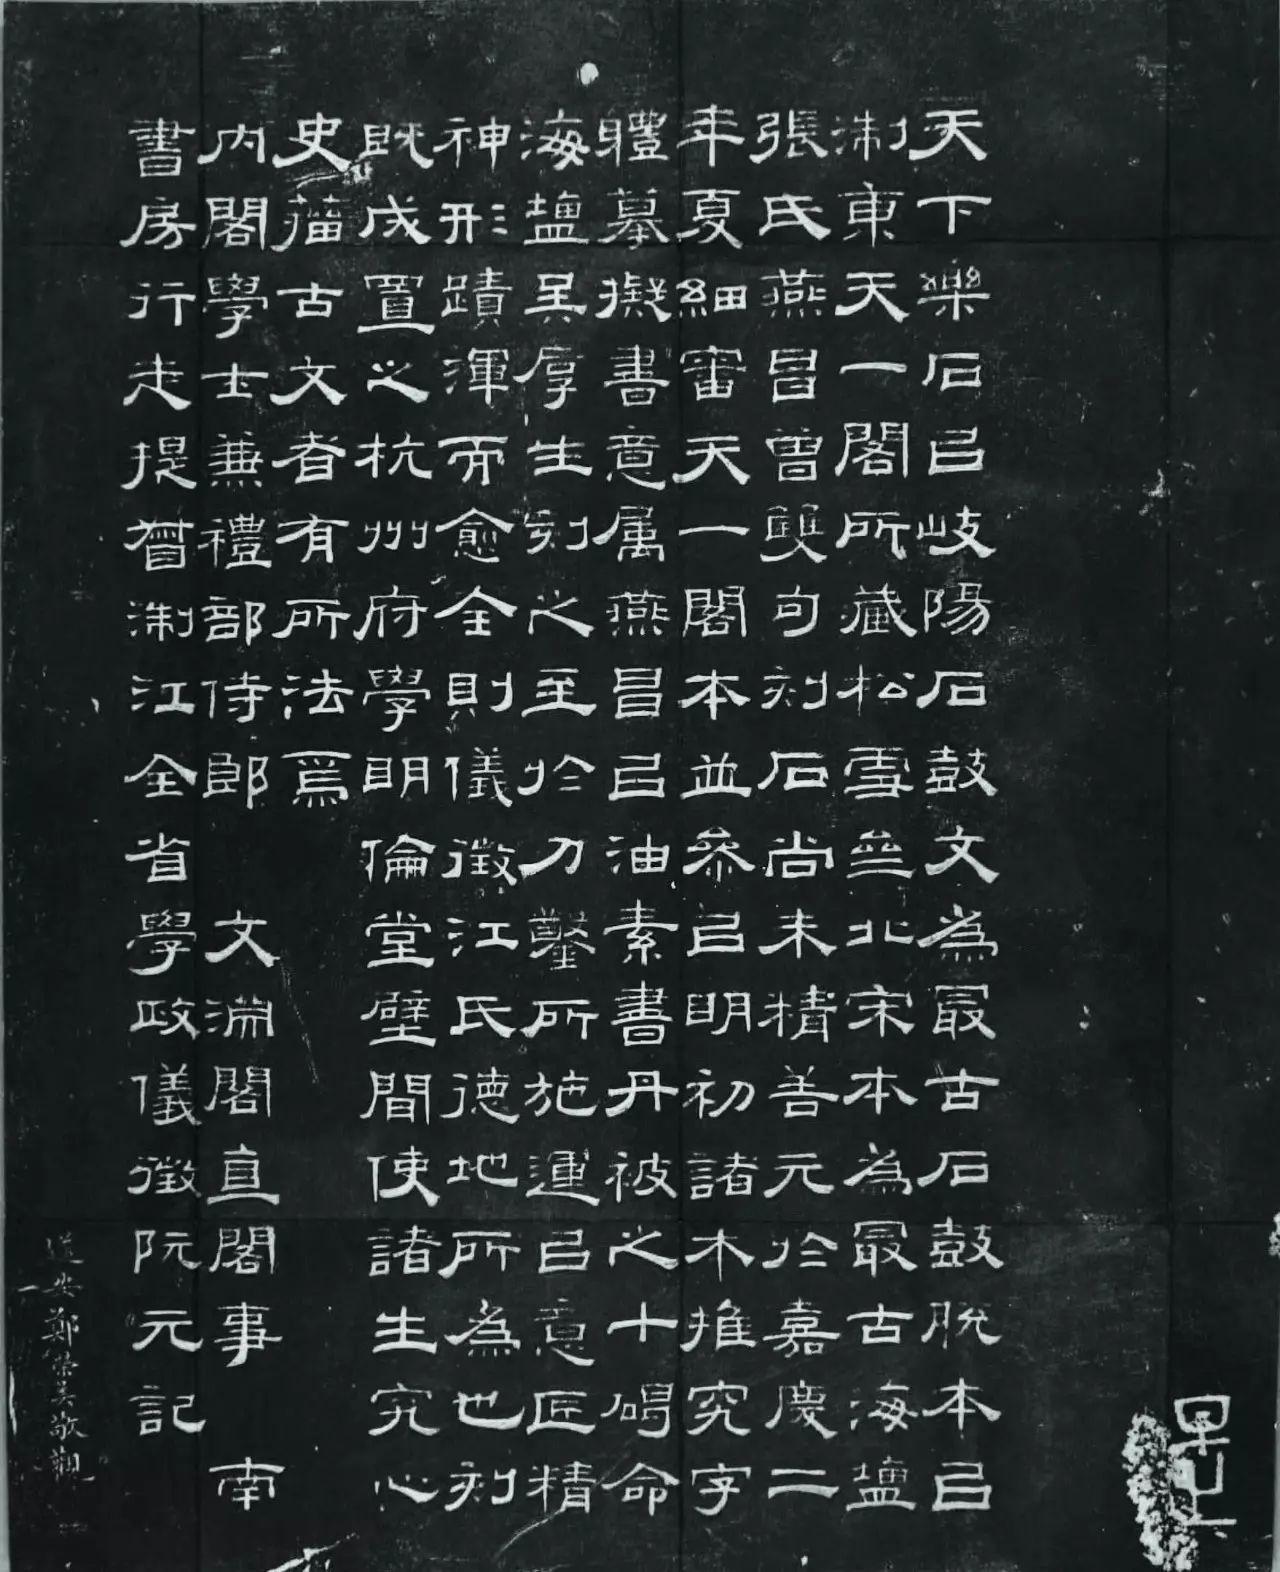 天下樂石㠯岐陽石鼓文為冣古石鼓脫本㠯
淛東天一閣所藏松雪亝北宋本為冣古海鹽
張氏燕昌曾雙句刻石尚未精善元於嘉慶二
年夏細審天一閣本並叅㠯明初諸本推究字
軆摹擬書意属燕昌㠯油素書丹被之十碣命
海鹽吳厚生刻之至於刀鑿所施運㠯意匠精
神形蹟渾而愈全則儀徵江氏德地所為也刻
既成置之杭州府學明倫堂壁間使諸生究心
史籀古文者有所法焉
內閣學士兼禮部侍郎 文淵閣直閣事 南
書房行走提督淛江全省學政儀徵阮元記
鄭敬觀